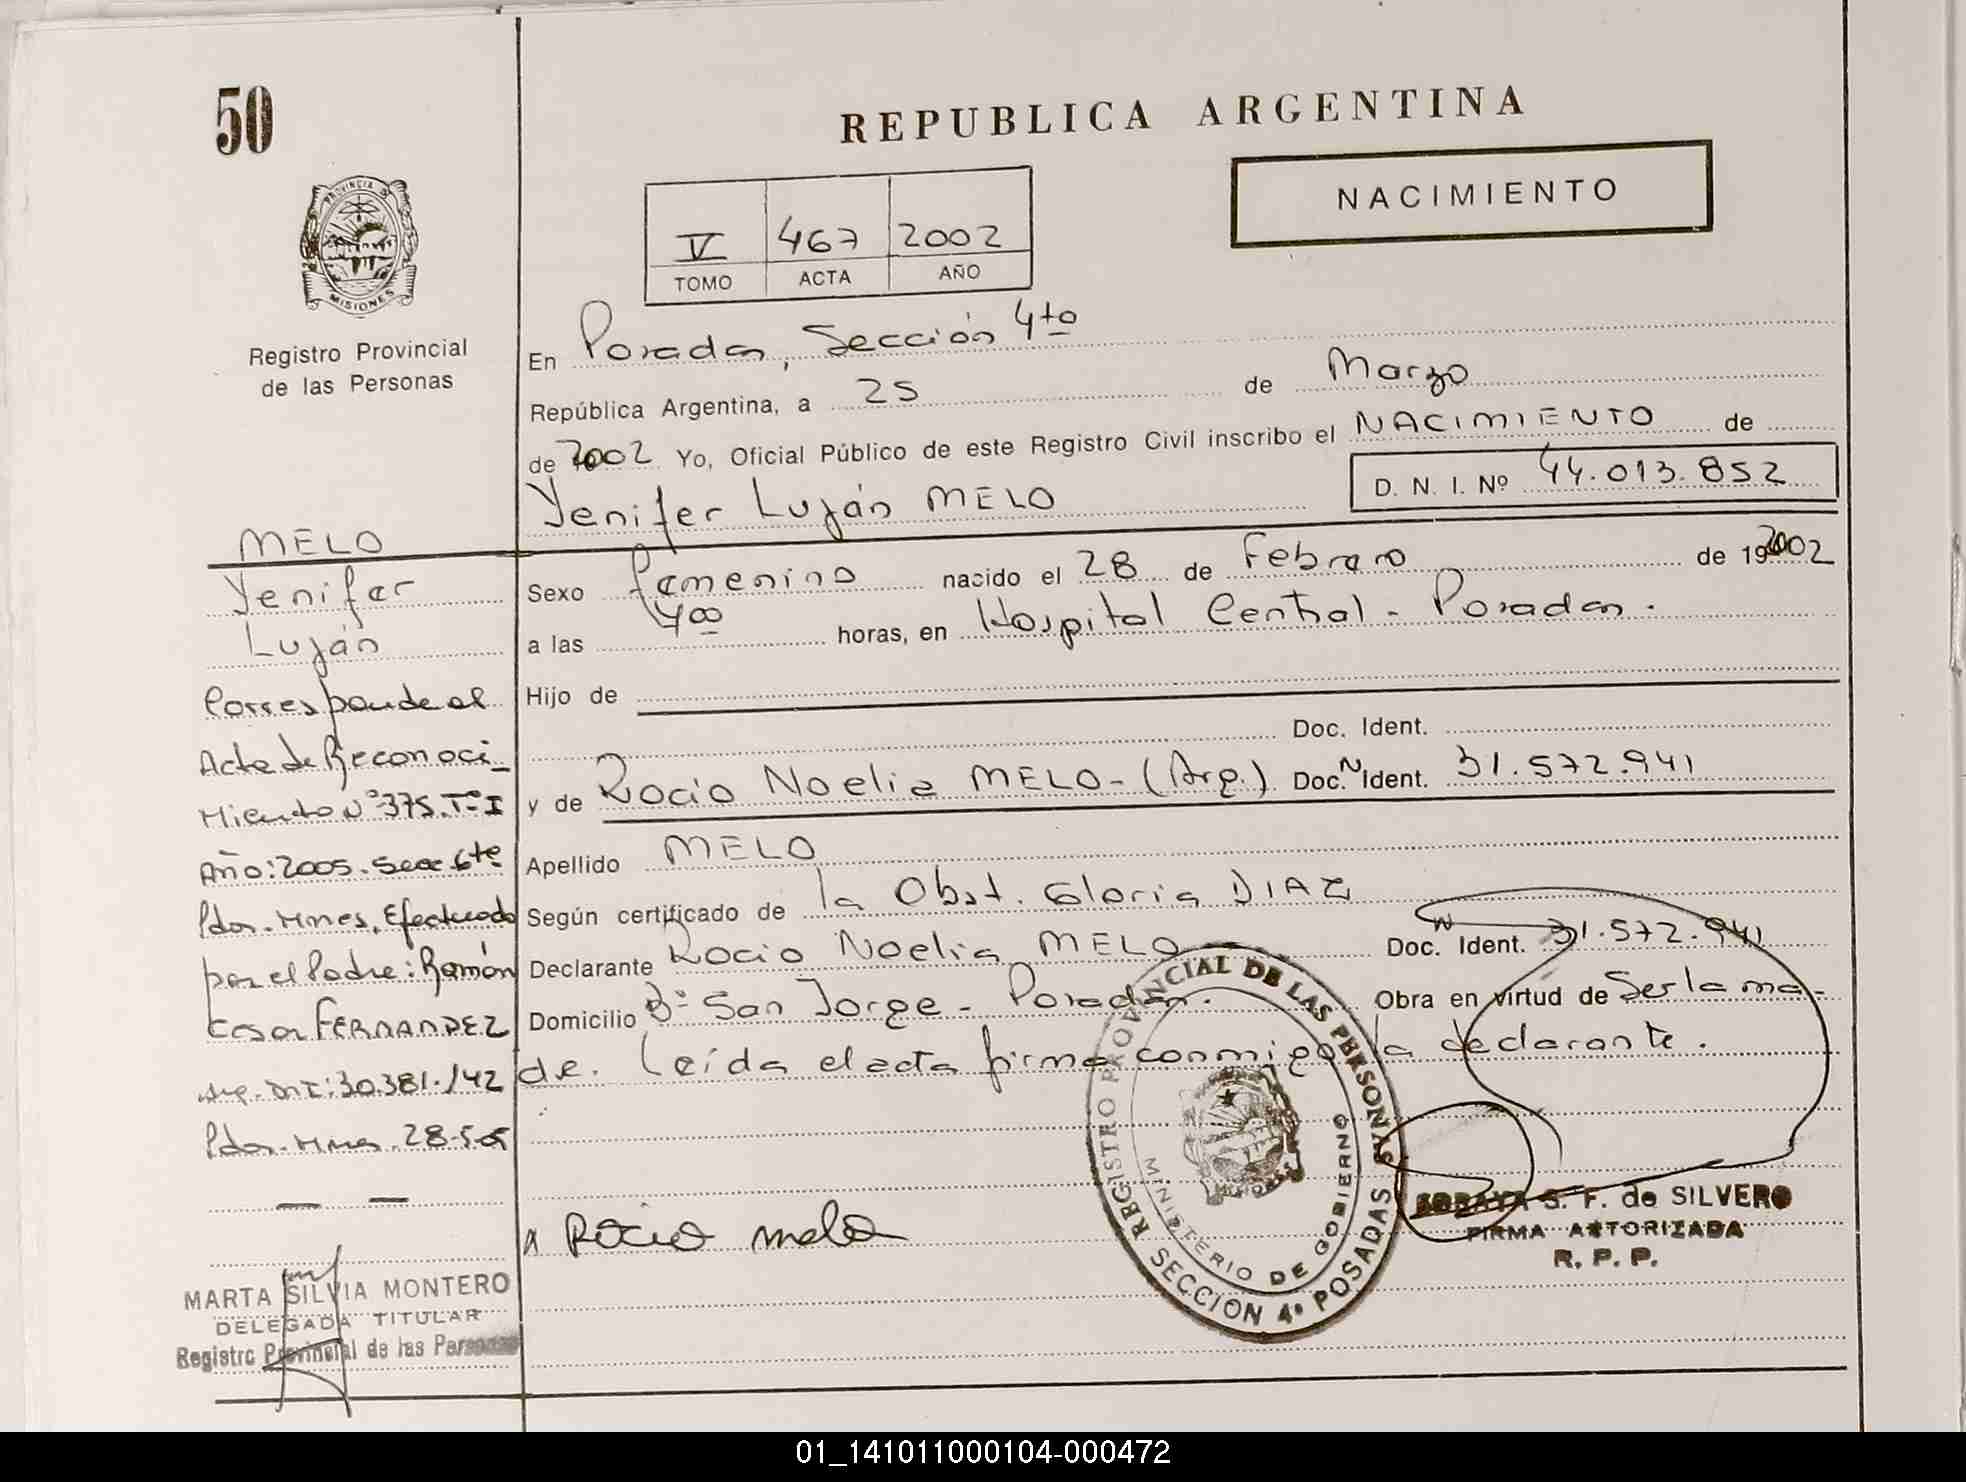 50
REPUBLICA ARGENTINA
NACIMIENTO
PROVINCIA DE
MISIONES
Registro Provincial
de las Personas
V 467 2002
TOMO ACTA AÑO
En Posadas, Sección 4to
República Argentina, a 25 de Marzo
de 2002 Yo, Oficial Público de este Registro Civil inscribo el NACIMIENTO de
D. N. I. Nº 44.013.852
Yenifer Luján MELO
Sexo femenino nacido el 28 de Febrero de 192002
a las 4oo horas, en Hospital Central - Posadas.
Hijo de
Doc. Ident.
y de Rocio Noelia MELO - (Arg.) Doc.N Ident. 31.572.941
Apellido MELO
Según certificado de la Obst. Gloria DIAZ
Declarante Rocio Noelia MELO Doc. Ident. N 31.572.941
Domicilio Bº San Jorge - Posadas. Obra en virtud de Ser la ma-
dre. Leída el acta firma conmigo la declarante.
Rocio melo
MELO
Yenifer
Luján
Corresponde al
Acta de Reconoci-
miento Nº 375. Tº I
Año: 2005. Secc 6ta
Pdas. Mnes. Efectuado
por el Padre: Ramón
Cesar FERNANDEZ
Arg. DNI: 30.381.142
Pdas. Mnes. 28-5-05
MARTA SILVIA MONTERO
DELEGADA TITULAR
Registro Provincial de las Personas
REGISTRO PROVINCIAL DE LAS PERSONAS
MINISTERIO DE GOBIERNO
SECCION 4º POSADAS
SORAYA S. F. de SILVERO
FIRMA AUTORIZADA
R. P. P.
01_141011000104-000472